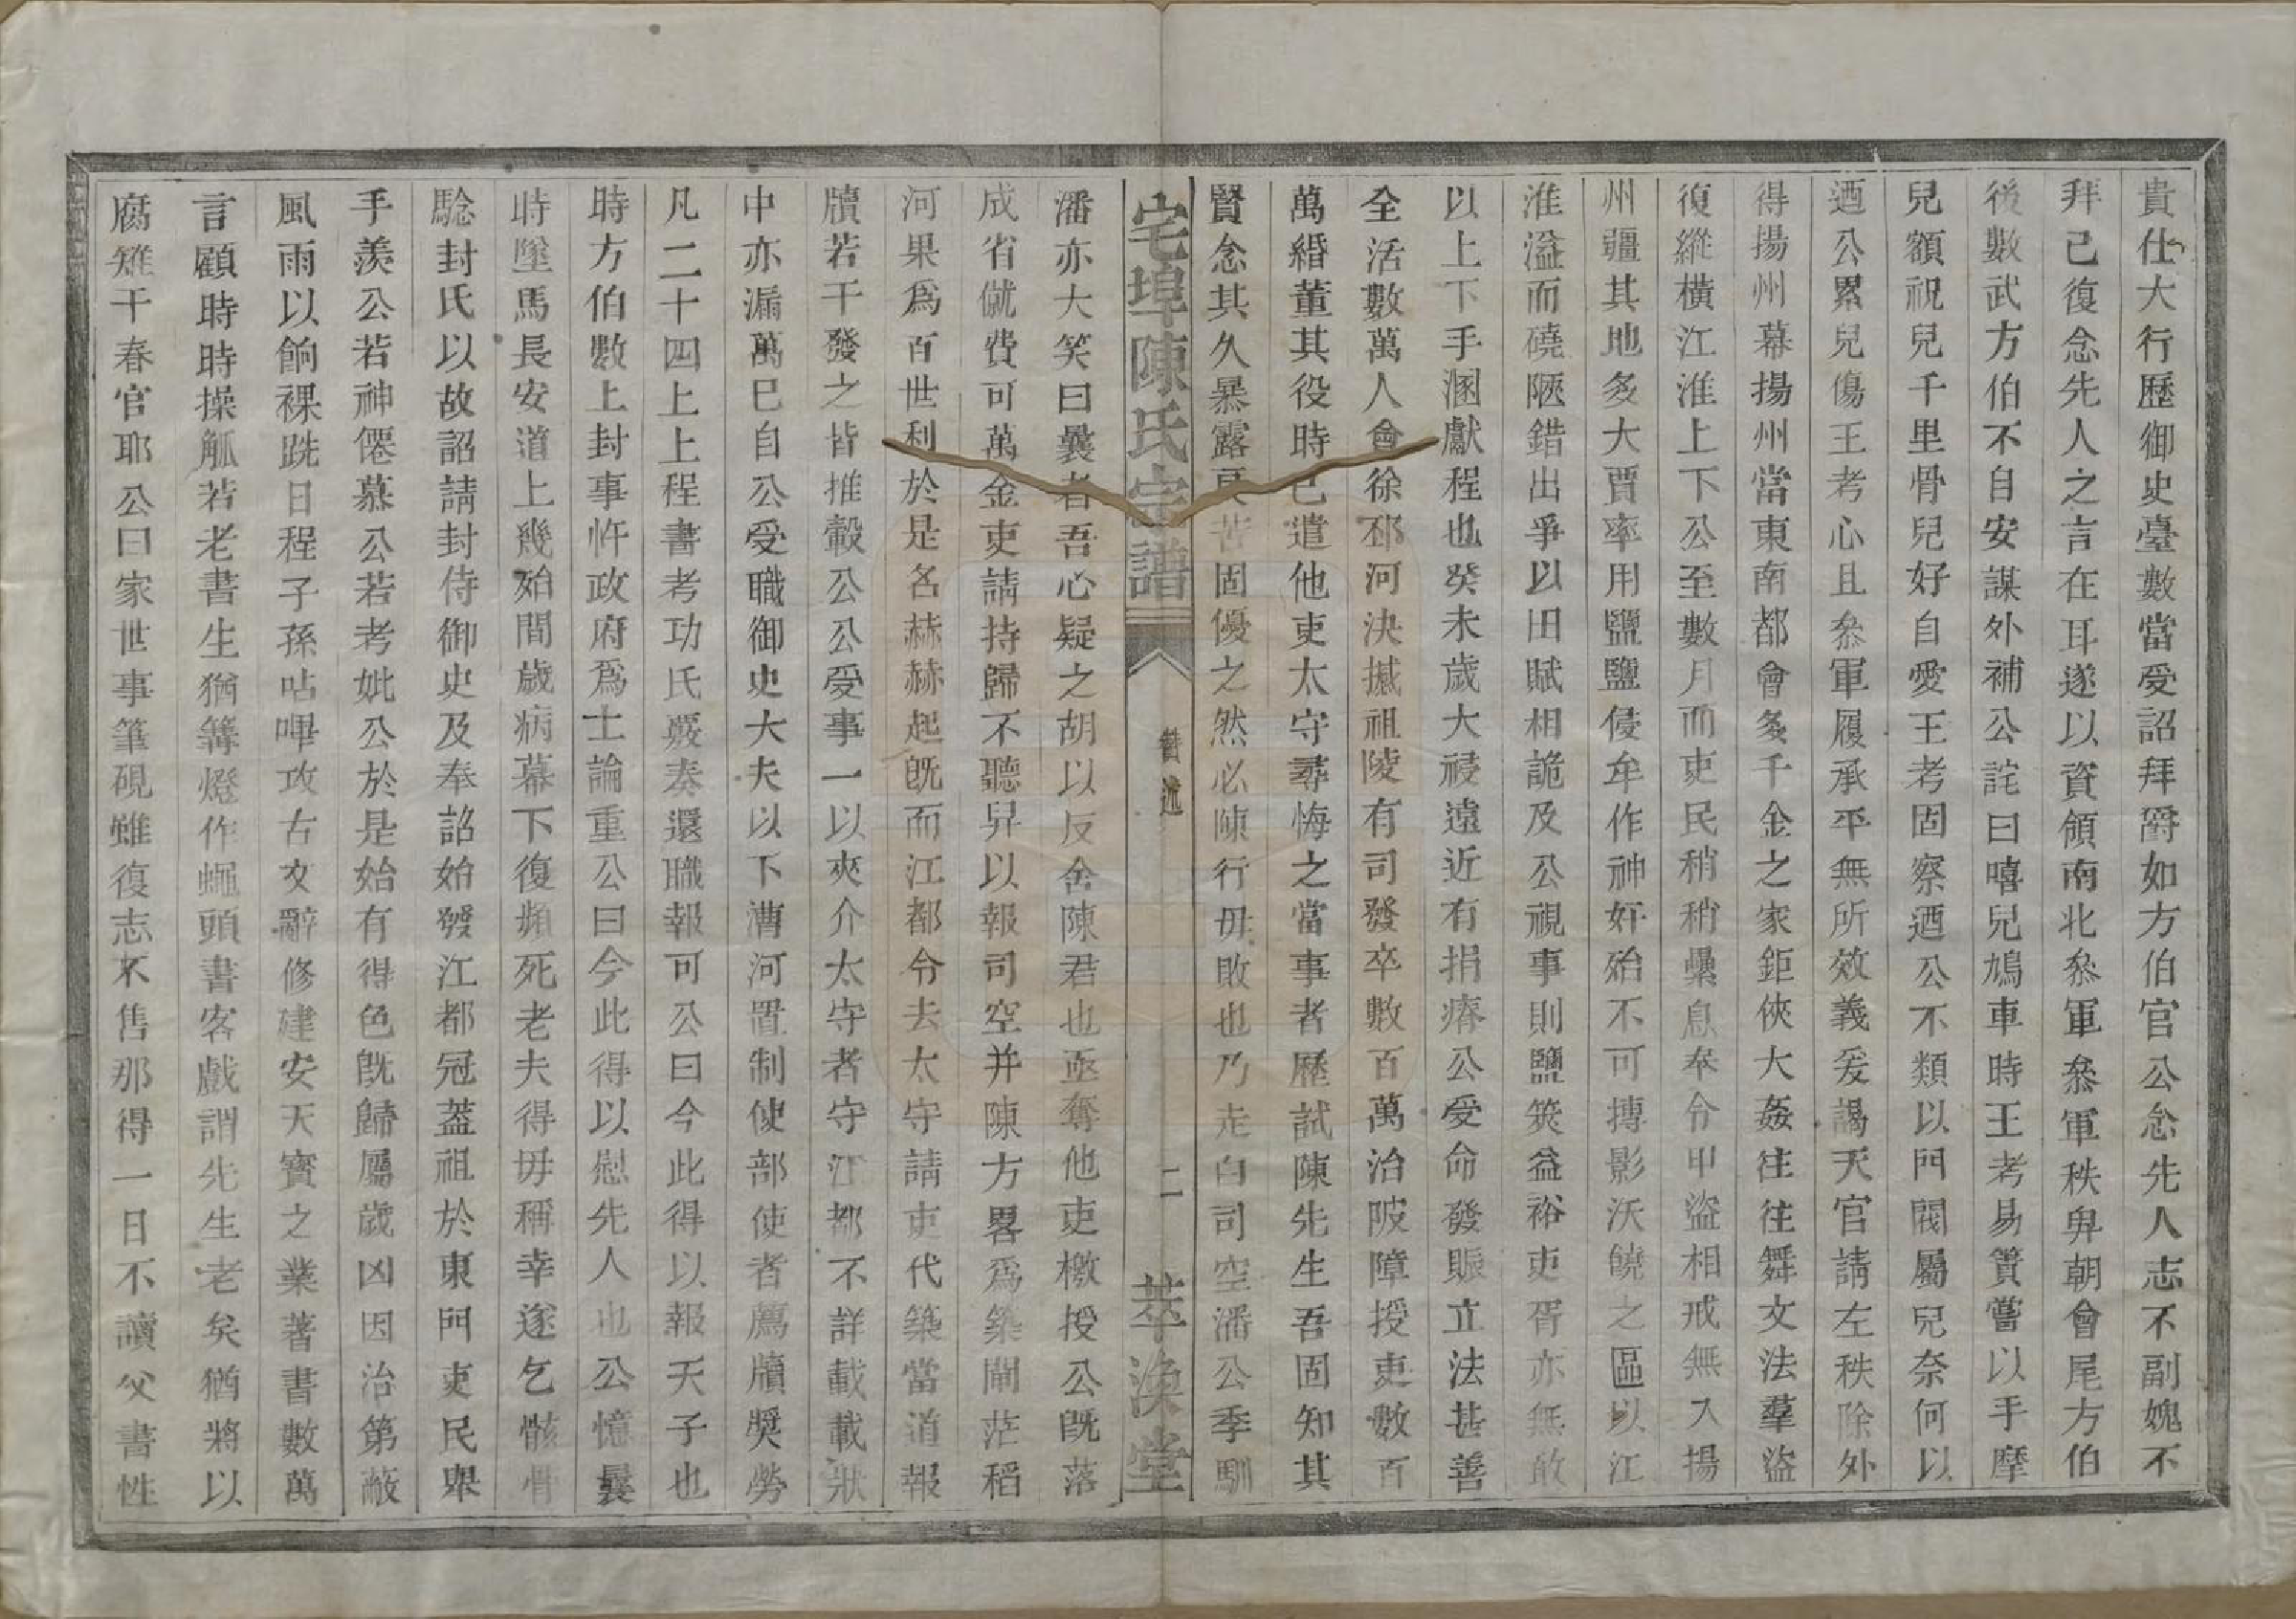 貴仕大行歷御史臺數當受詔拜爵如方伯官公念先人志不副媿不
拜己復念先人之言在耳遂以資領南北叅軍叅軍秩卑朝會尾方伯
後數武方伯不自安謀外補公詫曰嘻兒鳩車時王考易簀嘗以手摩
兒額祝兒兒千里骨兒好自愛王考固察迺公不類以門閥屬兒奈何以
迺公累兒傷王考心且叅軍履承平無所效義爰謁天官請左秩除外
得揚州幕揚州當東南都會多千金之家鉅俠大姦往往舞文法羣盜
復縱橫江淮上下公至數月而吏民稍稍纍息奉令甲盜相戒無入揚
州疆其地多大賈率用鹽鹽侵牟作神奸殆不可摶影沃饒之區以江
淮溢而磽陿錯出爭以田賦相詭及公視事則鹽筴益裕吏胥亦無敢
以上下手溷獻程也癸未歲大祲遠近有捐瘠公受命發賑立法甚善
全活數萬人會徐邳河決撼祖陵有司發卒數百萬治陂障授吏數百
萬緡董其役時已遣他吏太守尋悔之當事者歷試陳先生吾固知其
賢念其久暴露良苦固優之然必陳行毋敗也乃走白司空潘公季馴
宅埠陳氏宗譜
晳述
二
萃渙堂
潘亦大笑曰曩者吾心疑之胡以反舍陳君也亟奪他吏檄授公旣落
成省僦費可萬金吏請持歸不聽昇以報司空并陳方畧爲築閘茫稻
河果爲百世利於是名赫赫起旣而江都令去太守請吏代築當道報
牘若干發之皆推轂公公受事一以夾介太守者守江都不詳載載狀
中亦漏萬巳自公受職御史大夫以下漕河置制使部使者薦牘奬勞
凡二十四上上程書考功氏覈奏還職報可公曰今此得以報天子也
時方伯數上封事忤政府爲士論重公曰今此得以慰先人也公憶曩
時墜馬長安道上幾殆間歲病幕下復瀕死老夫得毋稱幸遂乞骸骨
騐封氏以故詔請封侍御史及奉詔始發江都冠蓋祖於東門吏民舉
手羨公若神僊慕公若考妣公於是始有得色旣歸屬歲凶因治第蔽
風雨以餉裸跣日程子孫呫嗶攻古文辭修建安天寶之業著書數萬
言顧時時操觚若老書生猶篝燈作蠅頭書客戲謂先生老矣猶將以
腐雉干春官耶公曰家世事筆硯雖復志不售那得一日不讀父書性